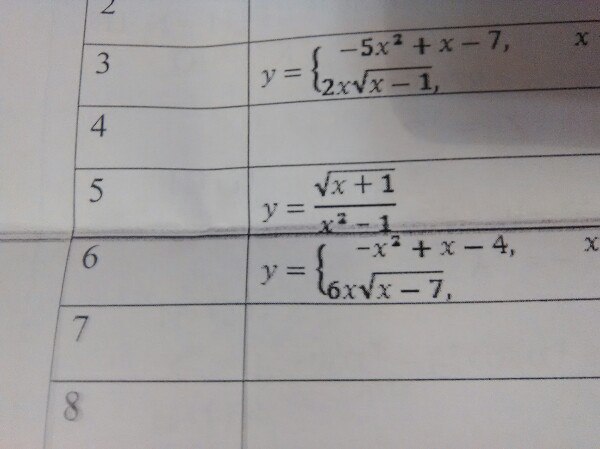 2
3
y = { −5x² + x − 7, x
2x√x − 1,
4
5
y = √x + 1 / x² − 1
6
y = { −x² + x − 4, x
6x√x − 7,
7
8